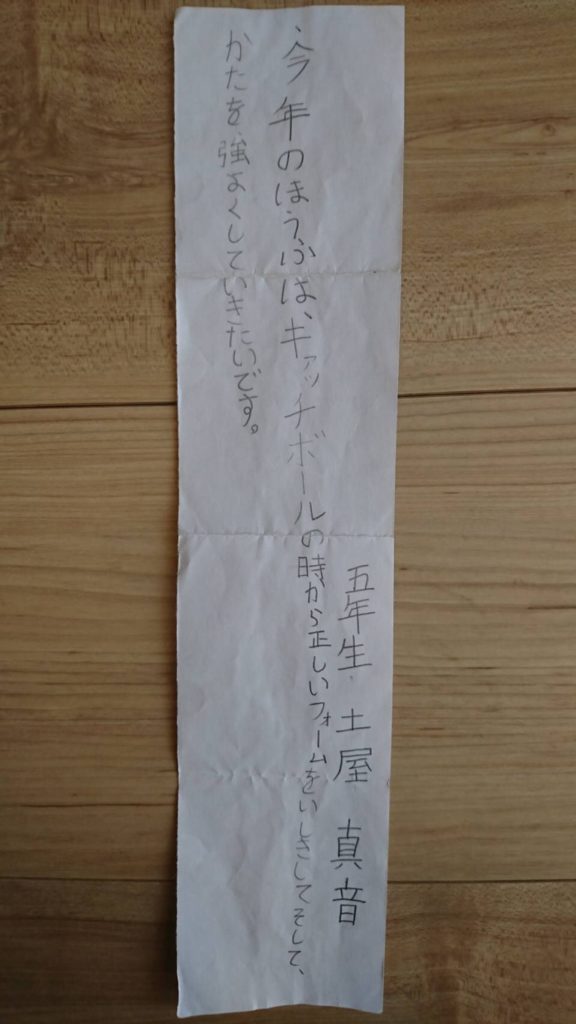 五年生 土屋 真音
今年のほうふは、キァッチボールの時から正しいフォームをいしきしてそして、
かたを強よくしていきたいです。